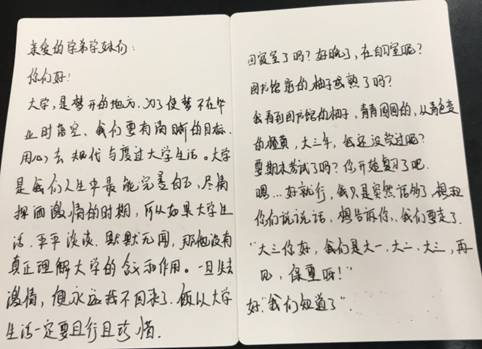 亲爱的学弟学妹们：
你们好！
大学，是梦开的地方，为了使梦不在毕
业时落空，我们要有清晰的目标，
用心去规划与度过大学生活。大学
是我们人生中最能完善自己，尽情
挥洒激情的时期，所以如果大学生
活，平平淡淡，默默无闻，那他没有
真正理解大学的含义和作用。一旦失
激情，便永远找不回来了，所以大学
生活一定要且行且珍惜。
回寝室了吗？好晚了，在自习室呢？
图书馆后的柚子成熟了吗？
我看到图书馆的柚子，青青圆圆的，从青色变
的橙黄，大三年，我还没尝过呢？
要期末考试了吗？你开始复习了吧。
嗯…好就行，我只是突然话多了，想和
你们说说话，想告诉你，我们要走了，
“大三你好，我们是大一、大二、大三，再
见，保重呀！”
好“我们知道了”